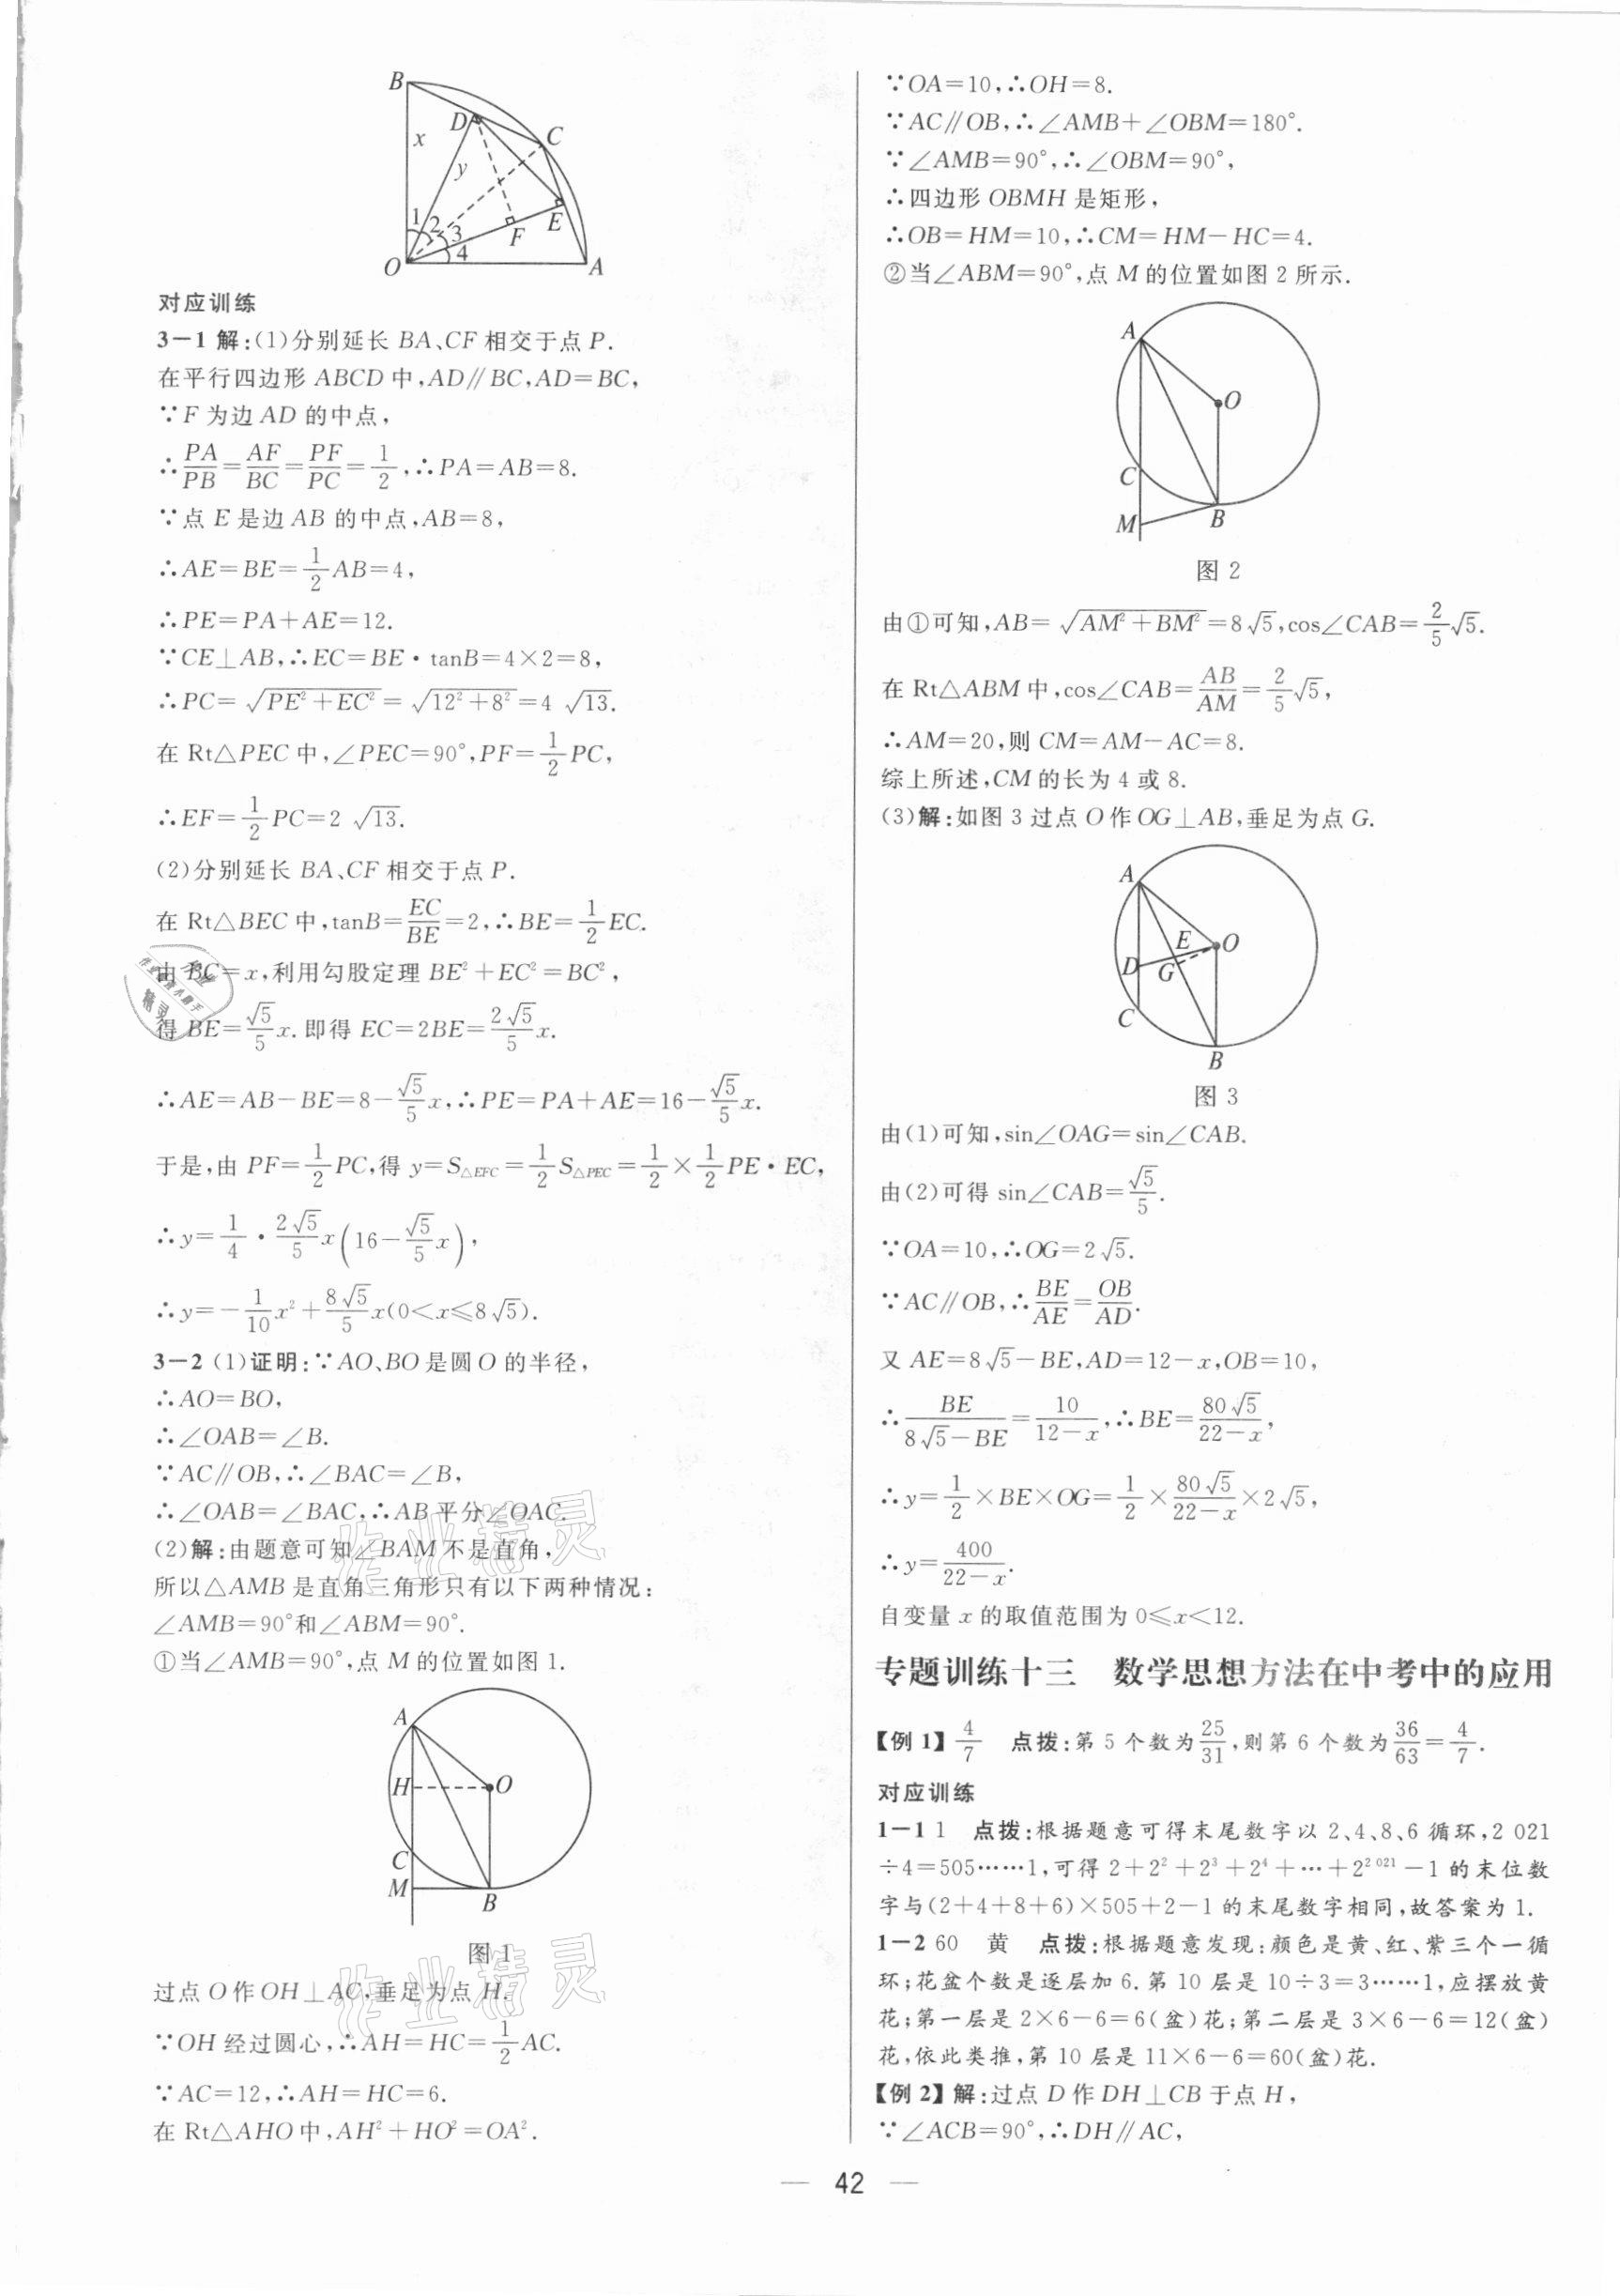 B
D
C
x
y
1
2
3
4
E
F
O
A
对应训练
3－1 解:(1)分别延长 BA、CF 相交于点 P.
在平行四边形 ABCD 中,AD∥BC,AD=BC,
∵F 为边 AD 的中点,
∴PA/PB=AF/BC=PF/PC=1/2,∴PA=AB=8.
∵点 E 是边 AB 的中点,AB=8,
∴AE=BE=1/2AB=4,
∴PE=PA+AE=12.
∵CE⊥AB,∴EC=BE·tanB=4×2=8,
∴PC=√(PE²+EC²)=√(12²+8²)=4√13.
在 Rt△PEC 中,∠PEC=90°,PF=1/2PC,
∴EF=1/2PC=2√13.
(2)分别延长 BA、CF 相交于点 P.
在 Rt△BEC 中,tanB=EC/BE=2,∴BE=1/2EC.
由 BC=x,利用勾股定理 BE²+EC²=BC²,
得 BE=√5/5x.即得 EC=2BE=2√5/5x.
∴AE=AB－BE=8－√5/5x,∴PE=PA+AE=16－√5/5x.
于是,由 PF=1/2PC,得 y=S△EFC=1/2S△PEC=1/2×1/2PE·EC,
∴y=1/4·2√5/5x(16－√5/5x),
∴y=－1/10x²+8√5/5x(0<x≤8√5).
3－2 (1)证明:∵AO、BO 是圆 O 的半径,
∴AO=BO,
∴∠OAB=∠B.
∵AC∥OB,∴∠BAC=∠B,
∴∠OAB=∠BAC,∴AB 平分∠OAC.
(2)解:由题意可知∠BAM 不是直角,
所以△AMB 是直角三角形只有以下两种情况:
∠AMB=90°和∠ABM=90°.
①当∠AMB=90°,点 M 的位置如图 1.
A
H
O
C
M
B
图 1
过点 O 作 OH⊥AC,垂足为点 H.
∵OH 经过圆心,∴AH=HC=1/2AC.
∵AC=12,∴AH=HC=6.
在 Rt△AHO 中,AH²+HO²=OA².
∵OA=10,∴OH=8.
∵AC∥OB,∴∠AMB+∠OBM=180°.
∵∠AMB=90°,∴∠OBM=90°,
∴四边形 OBMH 是矩形,
∴OB=HM=10,∴CM=HM－HC=4.
②当∠ABM=90°,点 M 的位置如图 2 所示.
A
O
C
M
B
图 2
由①可知,AB=√(AM²+BM²)=8√5,cos∠CAB=2/5√5.
在 Rt△ABM 中,cos∠CAB=AB/AM=2/5√5,
∴AM=20,则 CM=AM－AC=8.
综上所述,CM 的长为 4 或 8.
(3)解:如图 3 过点 O 作 OG⊥AB,垂足为点 G.
A
E
O
D
G
C
B
图 3
由(1)可知,sin∠OAG=sin∠CAB.
由(2)可得 sin∠CAB=√5/5.
∵OA=10,∴OG=2√5.
∵AC∥OB,∴BE/AE=OB/AD.
又 AE=8√5－BE,AD=12－x,OB=10,
∴BE/(8√5－BE)=10/(12－x),∴BE=80√5/(22－x),
∴y=1/2×BE×OG=1/2×80√5/(22－x)×2√5,
∴y=400/(22－x).
自变量 x 的取值范围为 0≤x<12.
专题训练十三　数学思想方法在中考中的应用
【例 1】4/7　点拨:第 5 个数为25/31,则第 6 个数为36/63=4/7.
对应训练
1－1 1　点拨:根据题意可得末尾数字以 2、4、8、6 循环,2 021
÷4=505……1,可得 2+2²+2³+2⁴+…+2²⁰²¹－1 的末位数
字与(2+4+8+6)×505+2－1 的末尾数字相同,故答案为 1.
1－2 60　黄　点拨:根据题意发现:颜色是黄、红、紫三个一循
环;花盆个数是逐层加 6.第 10 层是 10÷3=3……1,应摆放黄
花;第一层是 2×6－6=6(盆)花;第二层是 3×6－6=12(盆)
花,依此类推,第 10 层是 11×6－6=60(盆)花.
【例 2】解:过点 D 作 DH⊥CB 于点 H,
∵∠ACB=90°,∴DH∥AC,
— 42 —
作业精灵
作业精灵